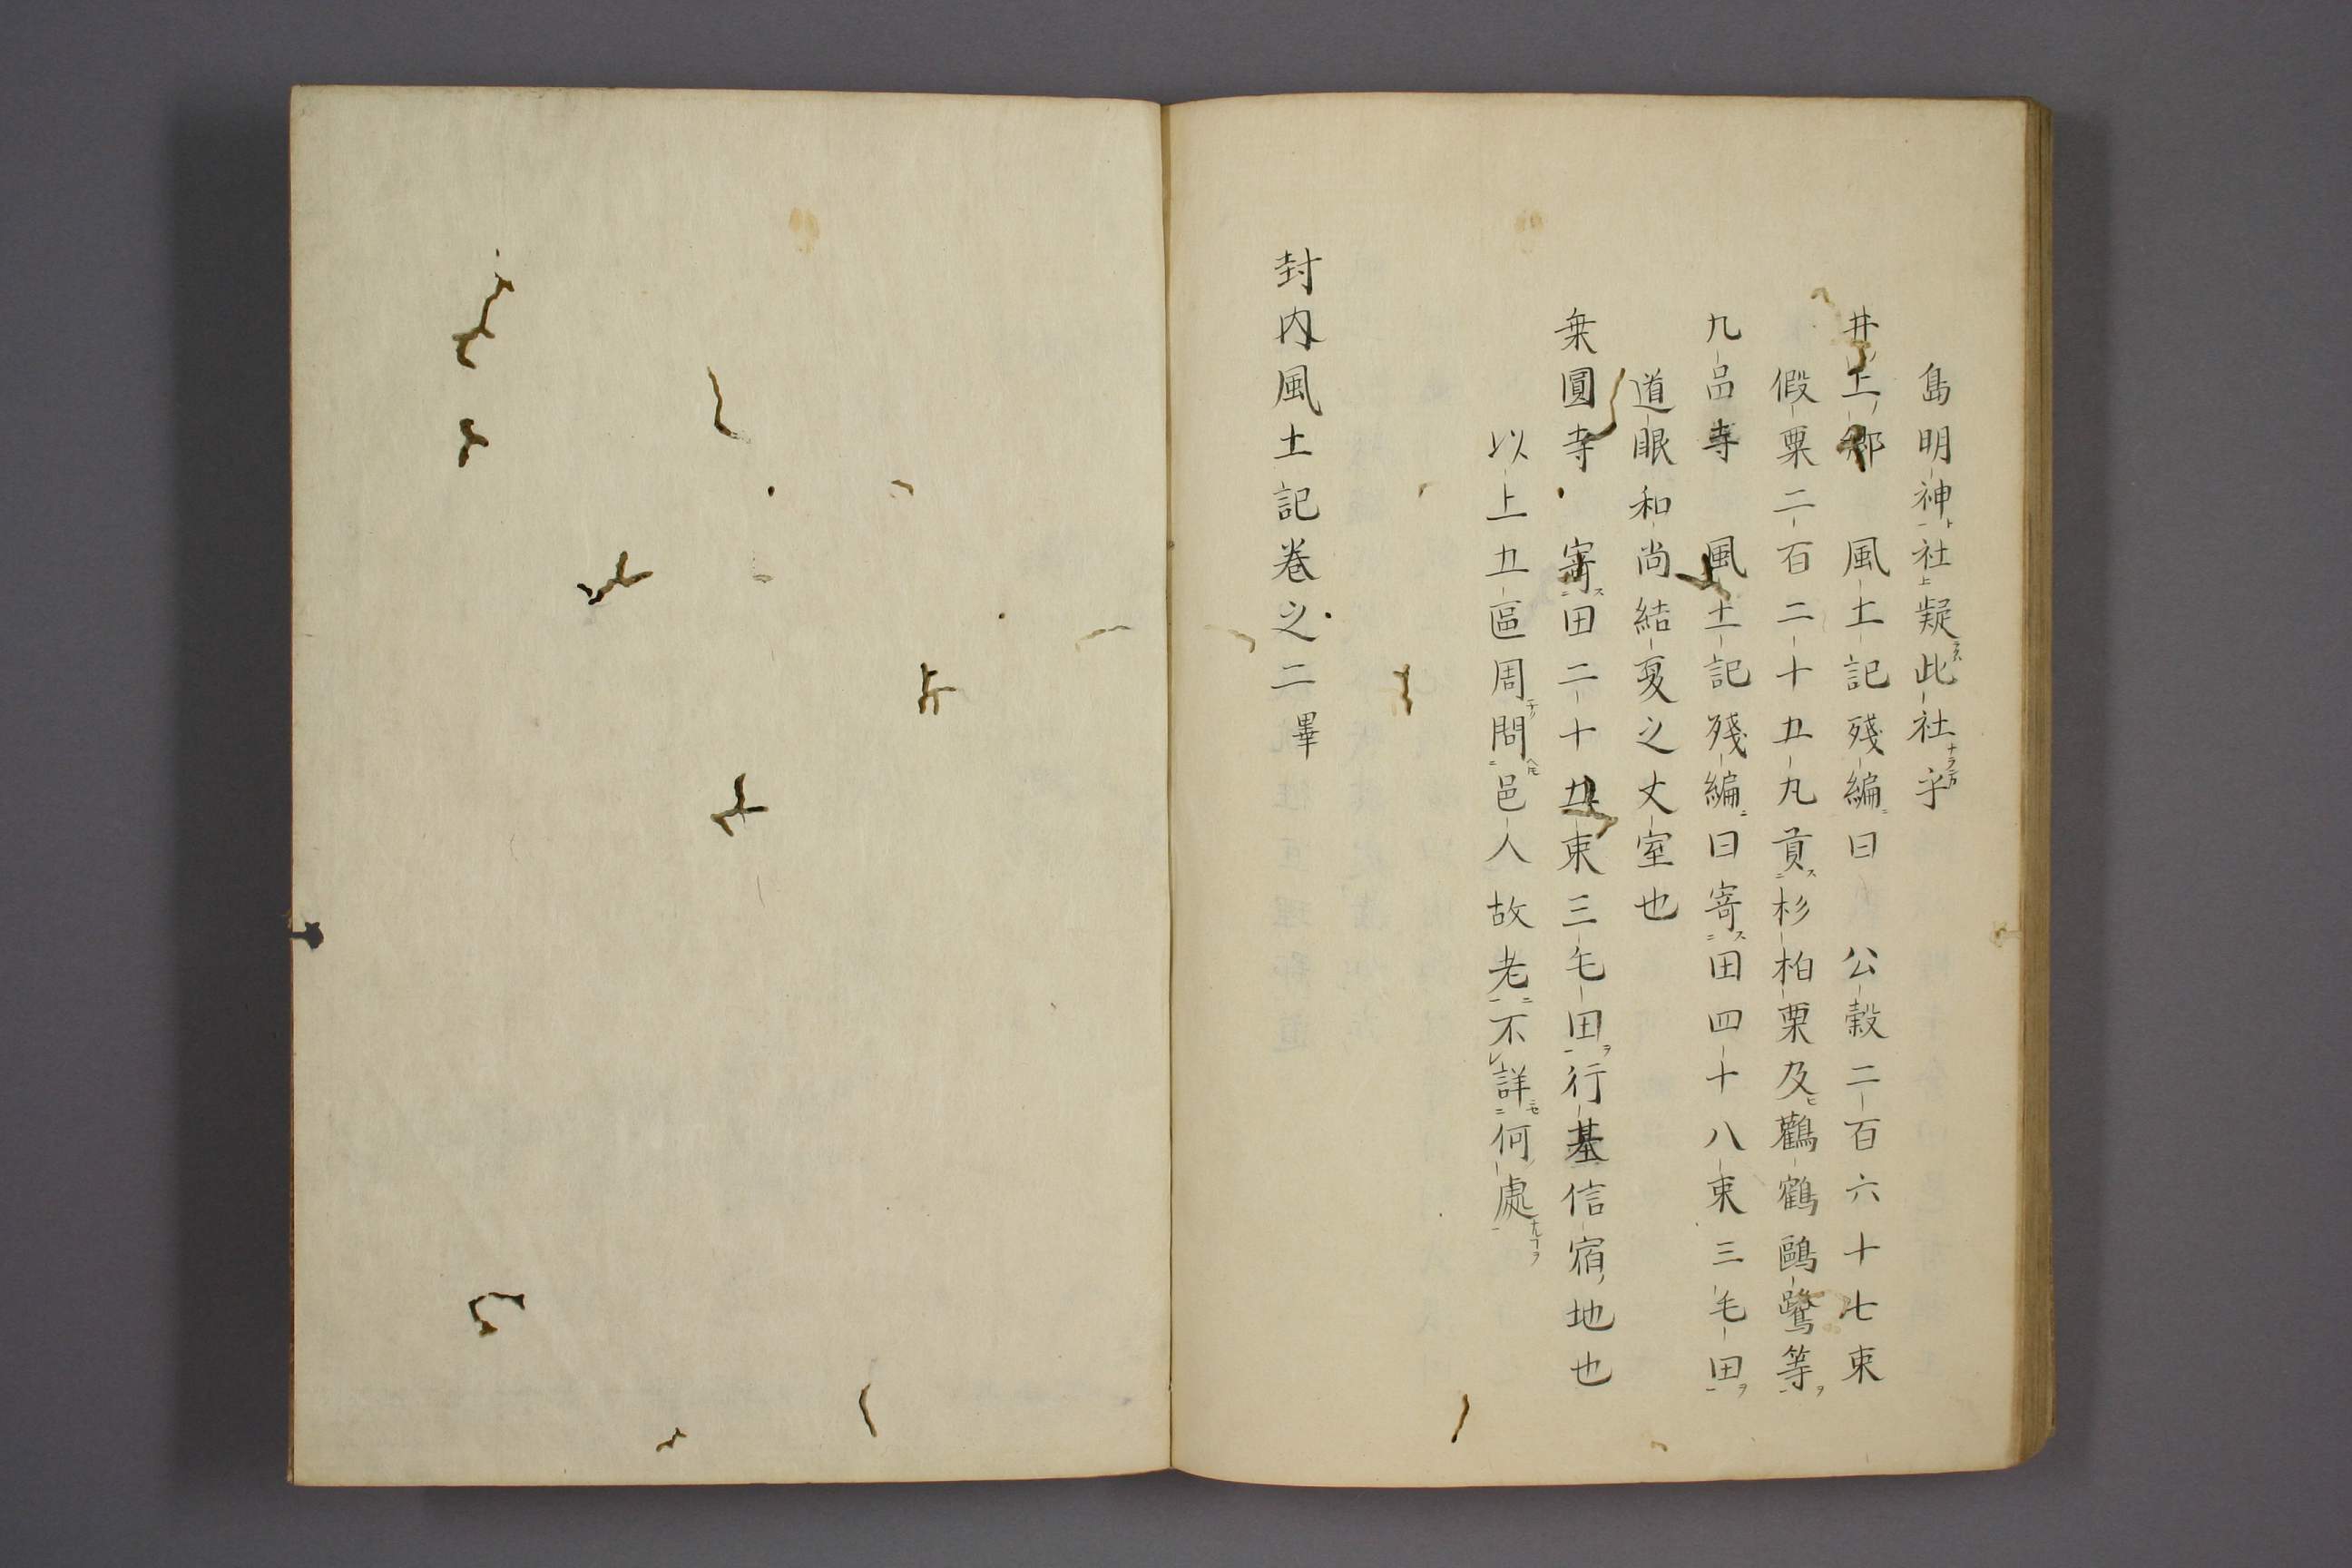 島明神社疑此社乎
井上郷　風土記殘編曰　公穀二百六十七束
假粟二百二十五丸貢杉柏栗及鸛鶴鷗鷺等
九品寺　風土記殘編曰寄田四十八束三毛田
道眼和尚結夏之丈室也
乗圓寺　寄田二十五束三毛田行基信宿地也
以上五區周問邑人故老不詳何處
封内風土記卷之二畢